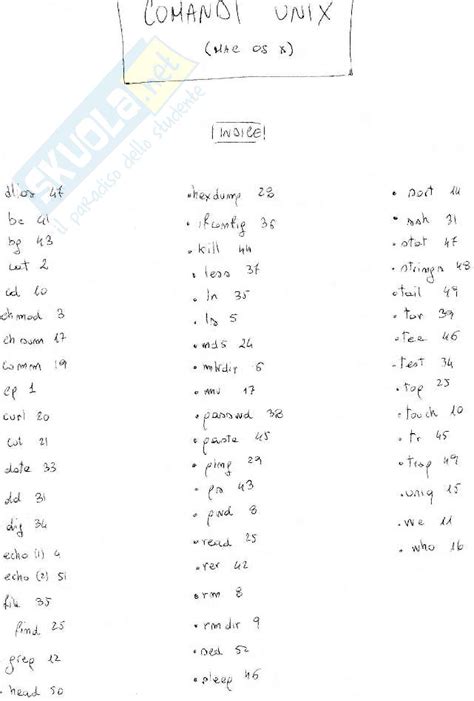 COMANDI UNIX
(MAC OS X)
SKUOLA.net
il paradiso dello studente
INDICE!
alias 47
bc 41
bg 43
cat 2
cd 10
chmod 3
ch sum 17
comm 19
cp 1
curl 20
cut 21
date 33
dd 31
dig 34
echo (1) 4
echo (2) 51
file 35
find 25
grep 12
• head 50
• hexdump 23
• ifconfig 36
• kill 44
• less 37
• ln 35
• ls 5
• md5 24
• mkdir 6
• mv 17
• passwd 38
• paste 45
• ping 29
• ps 43
• pwd 8
• read 25
• rev 42
• rm 8
• rmdir 9
• sed 52
• sleep 46
• sort 14
• ssh 31
• stat 47
• strings 48
• tail 49
• tar 39
• tee 46
• test 34
• top 25
• touch 10
• tr 45
• trap 49
• uniq 15
• wc 11
• who 16